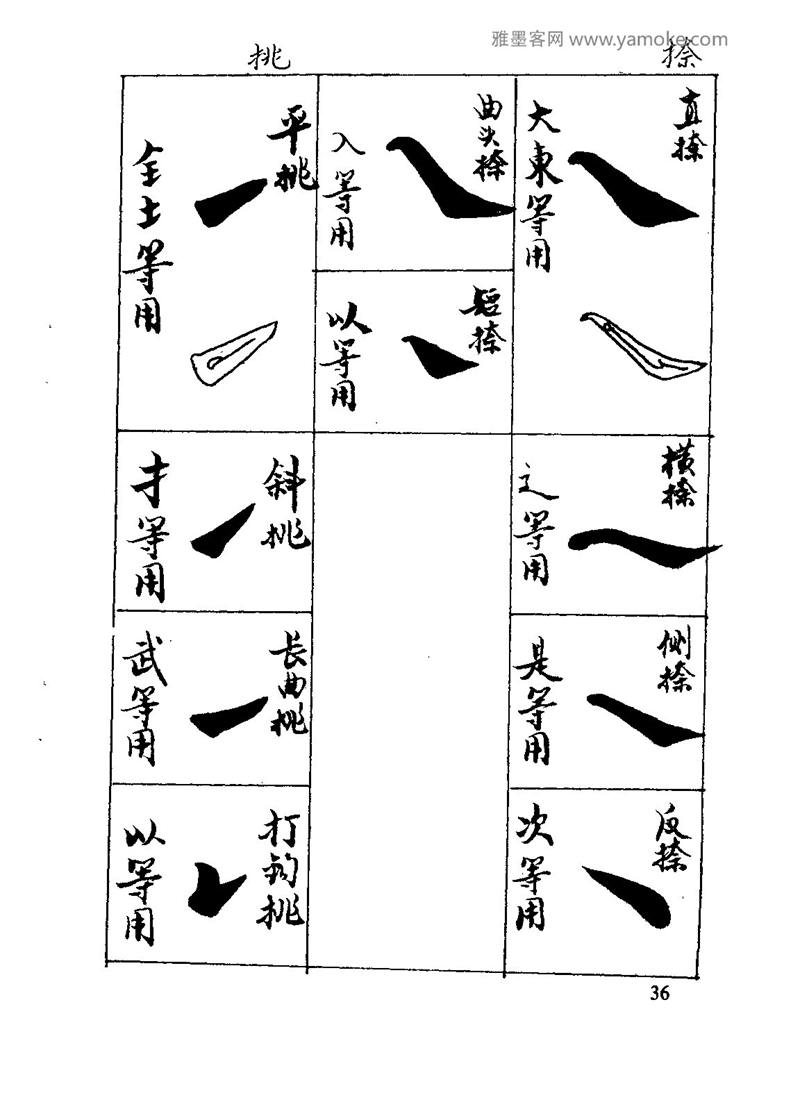 雅墨客网 www.yamoke.com
捺
直捺
大東等用
横捺
辶等用
侧捺
是等用
反捺
次等用
曲头捺
入等用
短捺
以等用
挑
平挑
全土等用
斜挑
扌等用
长曲挑
武等用
打钩挑
以等用
36